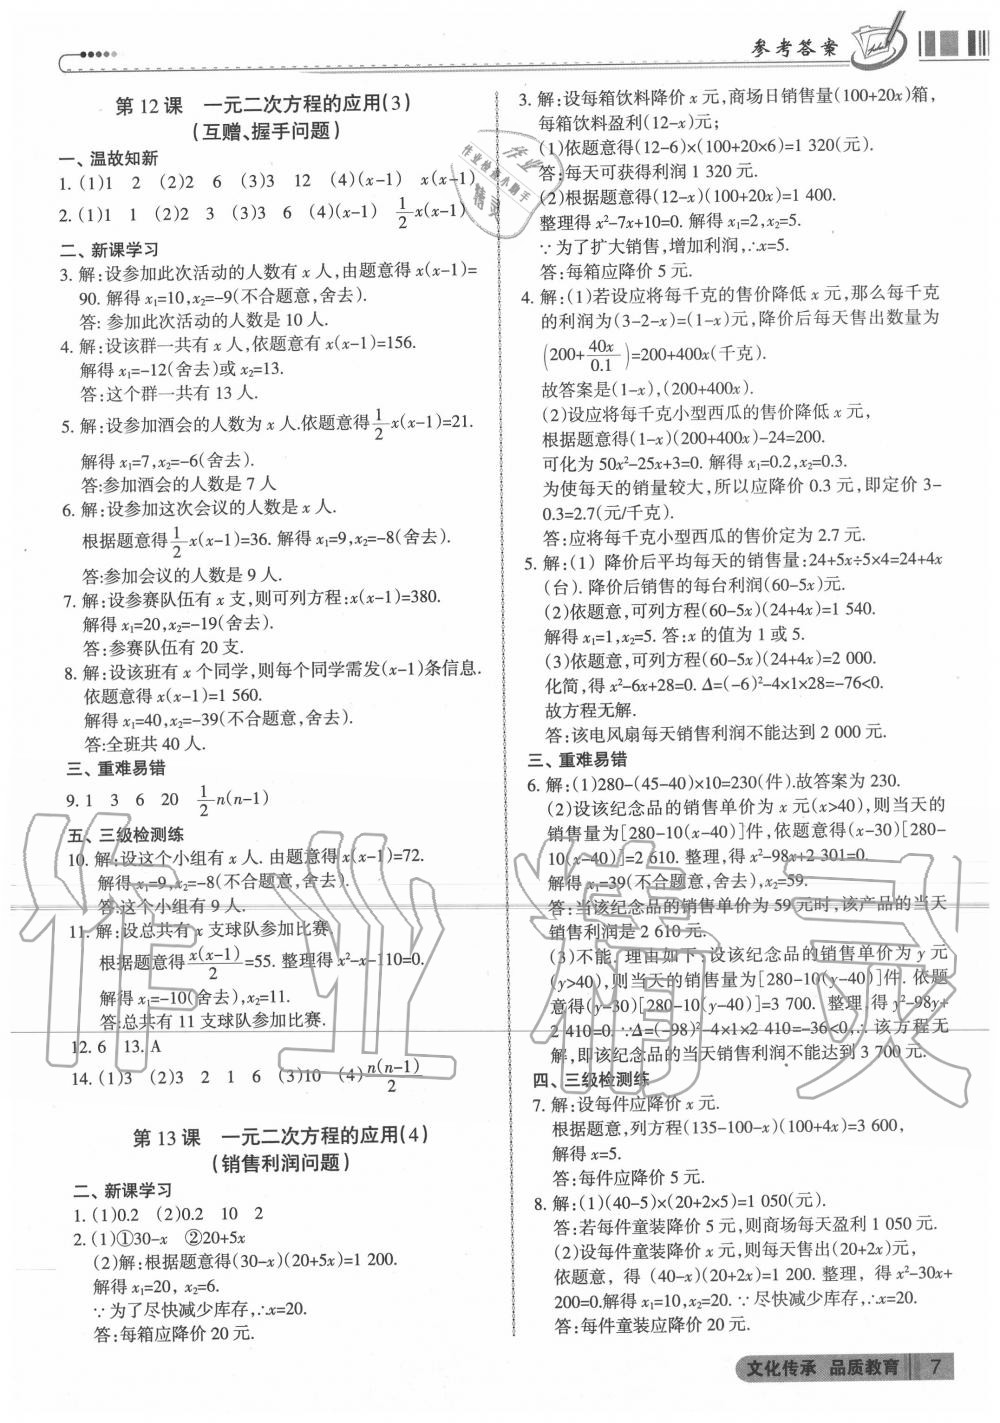 参考答案
第12课 一元二次方程的应用(3)
(互赠、握手问题)
一、温故知新
1. (1)1 2 (2)2 6 (3)3 12 (4)(x-1) x(x-1)
2. (1)1 1 (2)2 3 (3)3 6 (4)(x-1) 1/2x(x-1)
二、新课学习
3. 解:设参加此次活动的人数有 x 人,由题意得 x(x-1)=
90. 解得 x₁=10,x₂=-9(不合题意,舍去).
答: 参加此次活动的人数是 10 人.
4. 解:设该群一共有 x 人,依题意有 x(x-1)=156.
解得 x₁=-12(舍去)或 x₂=13.
答:这个群一共有 13 人.
5. 解:设参加酒会的人数为 x 人.依题意得1/2x(x-1)=21.
解得 x₁=7,x₂=-6(舍去).
答:参加酒会的人数是 7 人
6. 解:设参加这次会议的人数是 x 人.
根据题意得1/2x(x-1)=36. 解得 x₁=9,x₂=-8(舍去).
答:参加会议的人数是 9 人.
7. 解:设参赛队伍有 x 支,则可列方程:x(x-1)=380.
解得 x₁=20,x₂=-19(舍去).
答:参赛队伍有 20 支.
8. 解:设该班有 x 个同学,则每个同学需发(x-1)条信息.
依题意得 x(x-1)=1 560.
解得 x₁=40,x₂=-39(不合题意,舍去).
答:全班共 40 人.
三、重难易错
9. 1 3 6 20 1/2n(n-1)
五、三级检测练
10. 解:设这个小组有 x 人. 由题意得 x(x-1)=72.
解得 x₁=9,x₂=-8(不合题意,舍去).
答:这个小组有 9 人.
11. 解:设总共有 x 支球队参加比赛.
根据题意得x(x-1)/2=55. 整理得 x²-x-110=0.
解得 x₁=-10(舍去),x₂=11.
答:总共有 11 支球队参加比赛.
12. 6 13. A
14. (1)3 (2)3 2 1 6 (3)10 (4)n(n-1)/2
第13课 一元二次方程的应用(4)
(销售利润问题)
二、新课学习
1. (1)0.2 (2)0.2 10 2
2. (1)①30-x ②20+5x
(2)解:根据题意得(30-x)(20+5x)=1 200.
解得 x₁=20, x₂=6.
∵为了尽快减少库存,∴x=20.
答:每箱应降价 20 元.
3. 解:设每箱饮料降价 x 元,商场日销售量(100+20x)箱,
每箱饮料盈利(12-x)元;
(1)依题意得(12-6)×(100+20×6)=1 320(元).
答:每天可获得利润 1 320 元.
(2)根据题意得(12-x)(100+20x)=1 400.
整理得 x²-7x+10=0. 解得 x₁=2,x₂=5.
∵为了扩大销售,增加利润,∴x=5.
答:每箱应降价 5 元.
4. 解:(1)若设应将每千克的售价降低 x 元,那么每千克
的利润为(3-2-x)=(1-x)元,降价后每天售出数量为
(200+40x/0.1)=200+400x(千克).
故答案是(1-x),(200+400x).
(2)设应将每千克小型西瓜的售价降低 x 元,
根据题意得(1-x)(200+400x)-24=200.
可化为 50x²-25x+3=0. 解得 x₁=0.2,x₂=0.3.
为使每天的销量较大,所以应降价 0.3 元,即定价 3-
0.3=2.7(元/千克).
答:应将每千克小型西瓜的售价定为 2.7 元.
5. 解:(1) 降价后平均每天的销售量:24+5x÷5×4=24+4x
(台). 降价后销售的每台利润(60-5x)元.
(2)依题意,可列方程(60-5x)(24+4x)=1 540.
解得 x₁=1,x₂=5. 答:x 的值为 1 或 5.
(3)依题意,可列方程(60-5x)(24+4x)=2 000.
化简,得 x²-6x+28=0. Δ=(-6)²-4×1×28=-76<0.
故方程无解.
答:该电风扇每天销售利润不能达到 2 000 元.
三、重难易错
6. 解:(1)280-(45-40)×10=230(件).故答案为 230.
(2)设该纪念品的销售单价为 x 元(x>40),则当天的
销售量为[280-10(x-40)]件,依题意得(x-30)[280-
10(x-40)]=2 610. 整理,得 x²-98x+2 301=0.
解得 x₁=39(不合题意,舍去),x₂=59.
答:当该纪念品的销售单价为 59 元时,该产品的当天
销售利润是 2 610 元.
(3)不能, 理由如下: 设该纪念品的销售单价为 y 元
(y>40),则当天的销售量为[280-10(y-40)]件. 依题
意得(y-30)[280-10(y-40)]=3 700. 整理,得 y²-98y+
2 410=0. ∵Δ=(-98)²-4×1×2 410=-36<0,∴该方程无
解,即该纪念品的当天销售利润不能达到 3 700 元.
四、三级检测练
7. 解:设每件应降价 x 元.
根据题意,列方程(135-100-x)(100+4x)=3 600,
解得 x=5.
答:每件应降价 5 元.
8. 解:(1)(40-5)×(20+2×5)=1 050(元).
答:若每件童装降价 5 元,则商场每天盈利 1 050 元.
(2)设每件童装降价 x 元,则每天售出(20+2x)元,
依题意, 得 (40-x)(20+2x)=1 200. 整理, 得 x²-30x+
200=0.解得 x₁=10,x₂=20. ∵尽快减少库存,∴x=20.
答:每件童装应降价 20 元.
作业
作业检查小助手
精灵
作业精灵
文化传承 品质教育 7